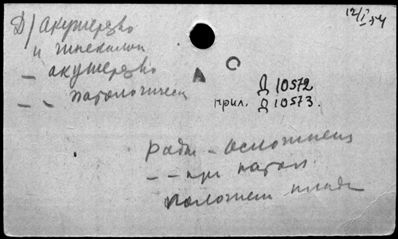 12/I 54
Д/ Акушерство
и гинеколог
– акушерство
– – патологическ
А С
Д 10572
прил. Д 10573.
роды – осложнен
– – при патол
положении плода